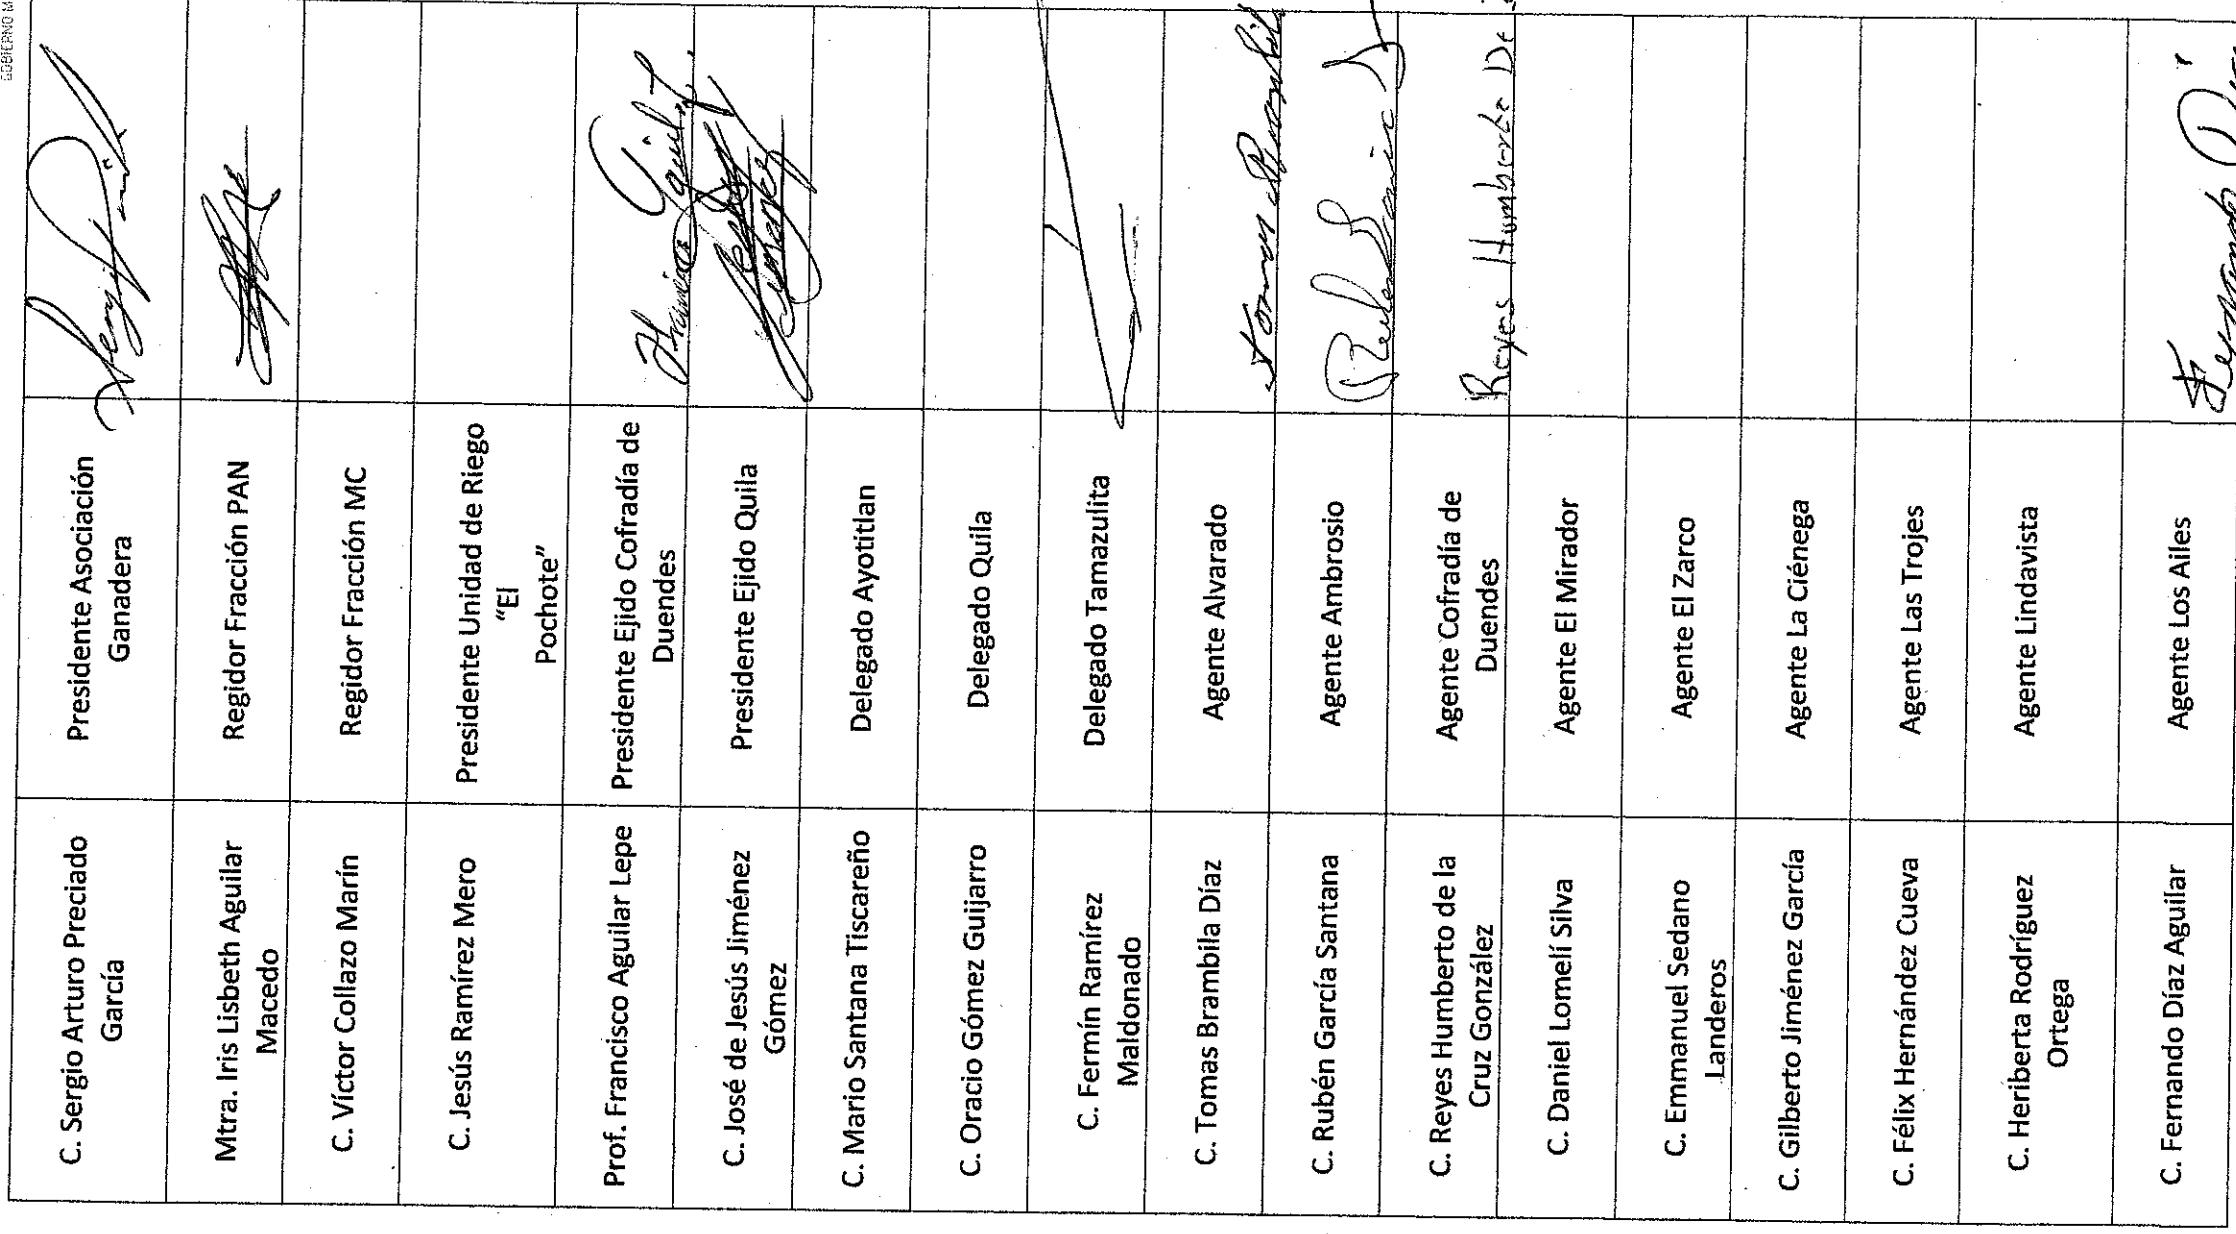 GOBIERNO M
C. Sergio Arturo Preciado
García
Presidente Asociación
Ganadera
Mtra. Iris Lisbeth Aguilar
Macedo
Regidor Fracción PAN
C. Víctor Collazo Marín
Regidor Fracción MC
C. Jesús Ramírez Mero
Presidente Unidad de Riego
"El
Pochote"
Prof. Francisco Aguilar Lepe
Presidente Ejido Cofradía de
Duendes
C. José de Jesús Jiménez
Gómez
Presidente Ejido Quila
C. Mario Santana Tiscareño
Delegado Ayotitlan
C. Oracio Gómez Guijarro
Delegado Quila
C. Fermín Ramírez
Maldonado
Delegado Tamazulita
C. Tomas Brambila Díaz
Agente Alvarado
C. Rubén García Santana
Agente Ambrosio
C. Reyes Humberto de la
Cruz González
Agente Cofradía de
Duendes
Reyes Humberto De
C. Daniel Lomelí Silva
Agente El Mirador
C. Emmanuel Sedano
Landeros
Agente El Zarco
C. Gilberto Jiménez García
Agente La Ciénega
C. Félix Hernández Cueva
Agente Las Trojes
C. Heriberta Rodríguez
Ortega
Agente Lindavista
C. Fernando Díaz Aguilar
Agente Los Ailes
Fernando